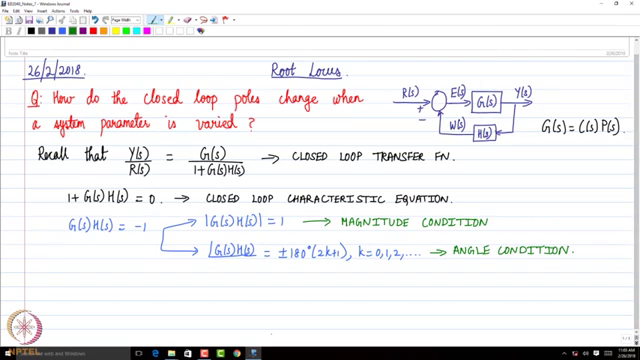 EE2040_Notes_7 - Windows Journal
File Edit View Insert Actions Tools Help
Page Width
Note Title
2/26/2018
26/2/2018.
Root Locus.
Q: How do the closed loop poles change when
a system parameter is varied ?
R(s) + − E(s) G(s) Y(s)
W(s) H(s)
G(s) = C(s) P(s).
Recall that Y(s)/R(s) = G(s)/(1+G(s)H(s)) → CLOSED LOOP TRANSFER FN.
1 + G(s)H(s) = 0. → CLOSED LOOP CHARACTERISTIC EQUATION.
G(s)H(s) = -1
|G(s)H(s)| = 1 → MAGNITUDE CONDITION
∠G(s)H(s) = ±180°(2k+1), k=0,1,2,.... → ANGLE CONDITION.
NPTEL
11:00 AM
2/26/2018